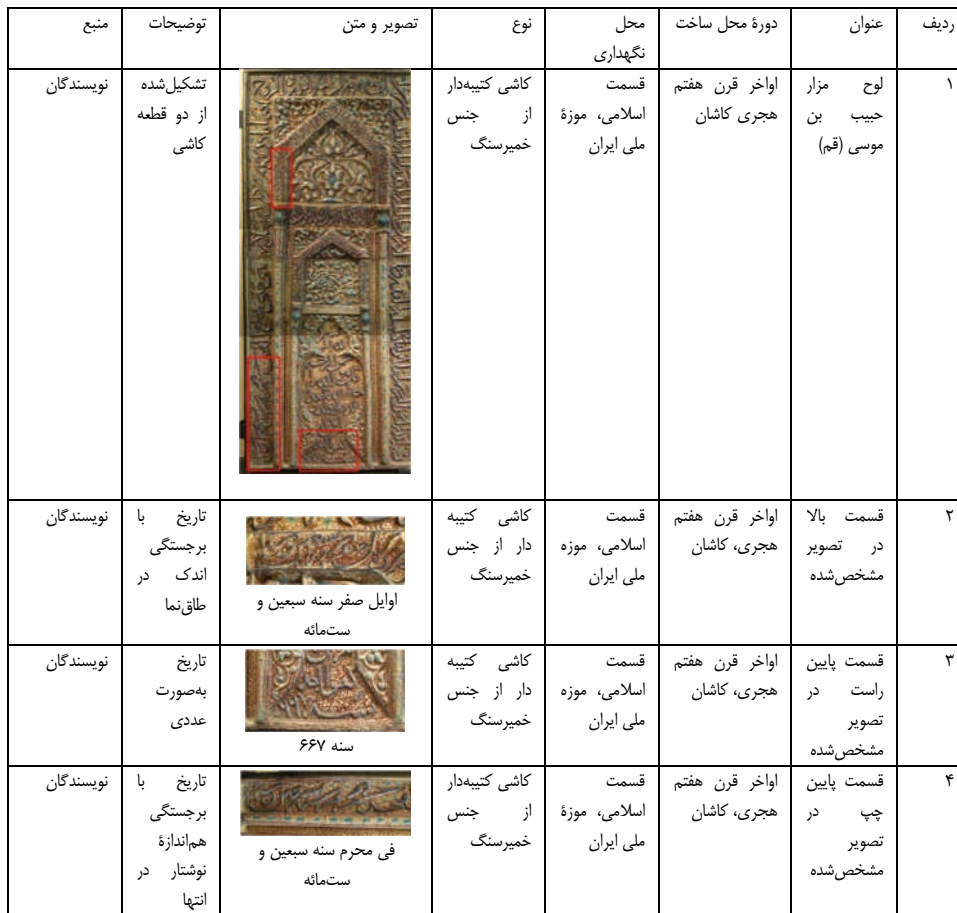 ردیف
عنوان
دورۀ محل ساخت
محل
نگهداری
نوع
تصویر و متن
توضیحات
منبع
۱
لوح مزار
حبیب بن
موسی (قم)
اواخر قرن هفتم
هجری کاشان
قسمت
اسلامی، موزۀ
ملی ایران
کاشی کتیبه‌دار
از جنس
خمیرسنگ
تشکیل‌شده
از دو قطعه
کاشی
نویسندگان
۲
قسمت بالا
در تصویر
مشخص‌شده
اواخر قرن هفتم
هجری، کاشان
قسمت
اسلامی، موزه
ملی ایران
کاشی کتیبه
دار از جنس
خمیرسنگ
اوایل صفر سنه سبعین و
ست‌مائه
تاریخ با
برجستگی
اندک در
طاق‌نما
نویسندگان
۳
قسمت پایین
راست در
تصویر
مشخص‌شده
اواخر قرن هفتم
هجری، کاشان
قسمت
اسلامی، موزه
ملی ایران
کاشی کتیبه
دار از جنس
خمیرسنگ
سنه ۶۶۷
تاریخ
به‌صورت
عددی
نویسندگان
۴
قسمت پایین
چپ در
تصویر
مشخص‌شده
اواخر قرن هفتم
هجری، کاشان
قسمت
اسلامی، موزۀ
ملی ایران
کاشی کتیبه‌دار
از جنس
خمیرسنگ
فی محرم سنه سبعین و
ست‌مائه
تاریخ با
برجستگی
هم‌اندازۀ
نوشتار در
انتها
نویسندگان